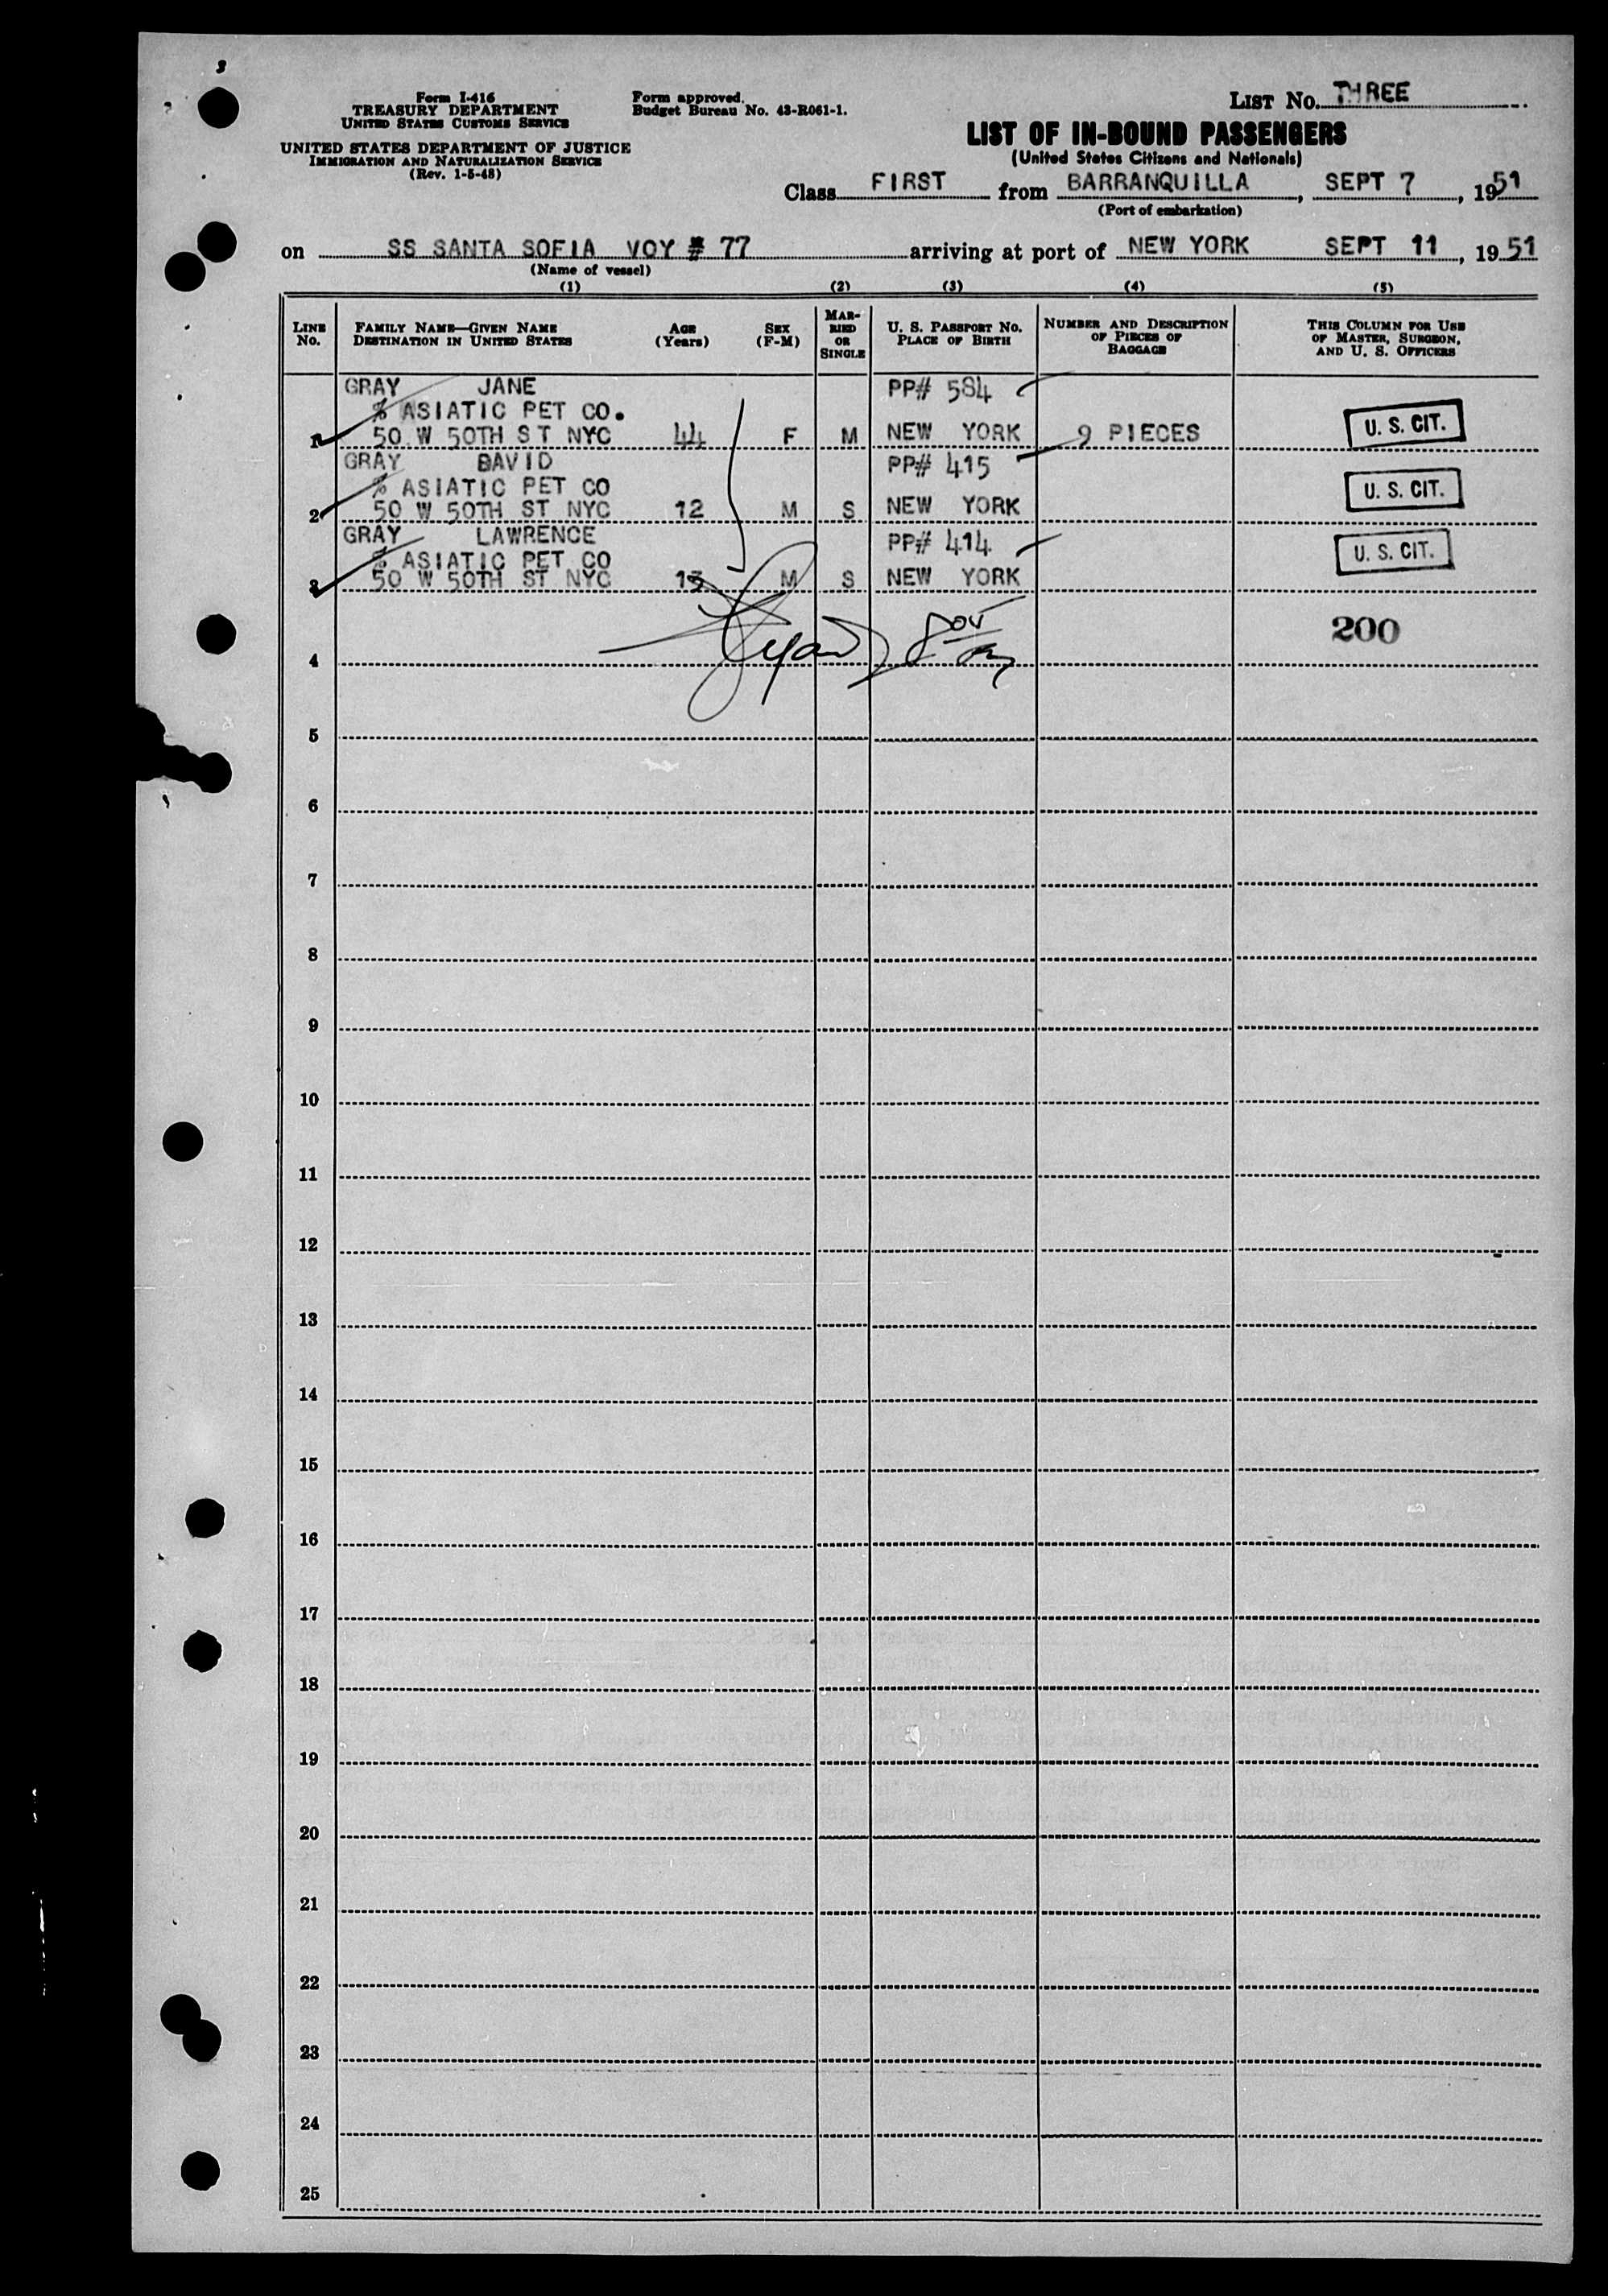 3
Form I-416
TREASURY DEPARTMENT
UNITED STATES CUSTOMS SERVICE
UNITED STATES DEPARTMENT OF JUSTICE
IMMIGRATION AND NATURALIZATION SERVICE
(Rev. 1-5-48)
Form approved.
Budget Bureau No. 43-R061-1.
LIST NO. THREE
LIST OF IN-BOUND PASSENGERS
(United States Citizens and Nationals)
Class FIRST from BARRANQUILLA, SEPT 7, 1951
(Port of embarkation)
on SS SANTA SOFIA VOY # 77 arriving at port of NEW YORK SEPT 11, 1951
(Name of vessel)
(1) (2) (3) (4) (5)
LINE NO. FAMILY NAME—GIVEN NAME DESTINATION IN UNITED STATES AGE (Years) SEX (F-M) MARRIED OR SINGLE U. S. PASSPORT NO. PLACE OF BIRTH NUMBER AND DESCRIPTION OF PIECES OF BAGGAGE THIS COLUMN FOR USE OF MASTER, SURGEON, AND U. S. OFFICERS
GRAY JANE PP# 584
% ASIATIC PET CO.
1 50 W 50TH ST NYC 44 F M NEW YORK 9 PIECES U. S. CIT.
GRAY DAVID PP# 415
% ASIATIC PET CO
2 50 W 50TH ST NYC 12 M S NEW YORK U. S. CIT.
GRAY LAWRENCE PP# 414
% ASIATIC PET CO
3 50 W 50TH ST NYC 13 M S NEW YORK U. S. CIT.
200
4
5
6
7
8
9
10
11
12
13
14
15
16
17
18
19
20
21
22
23
24
25